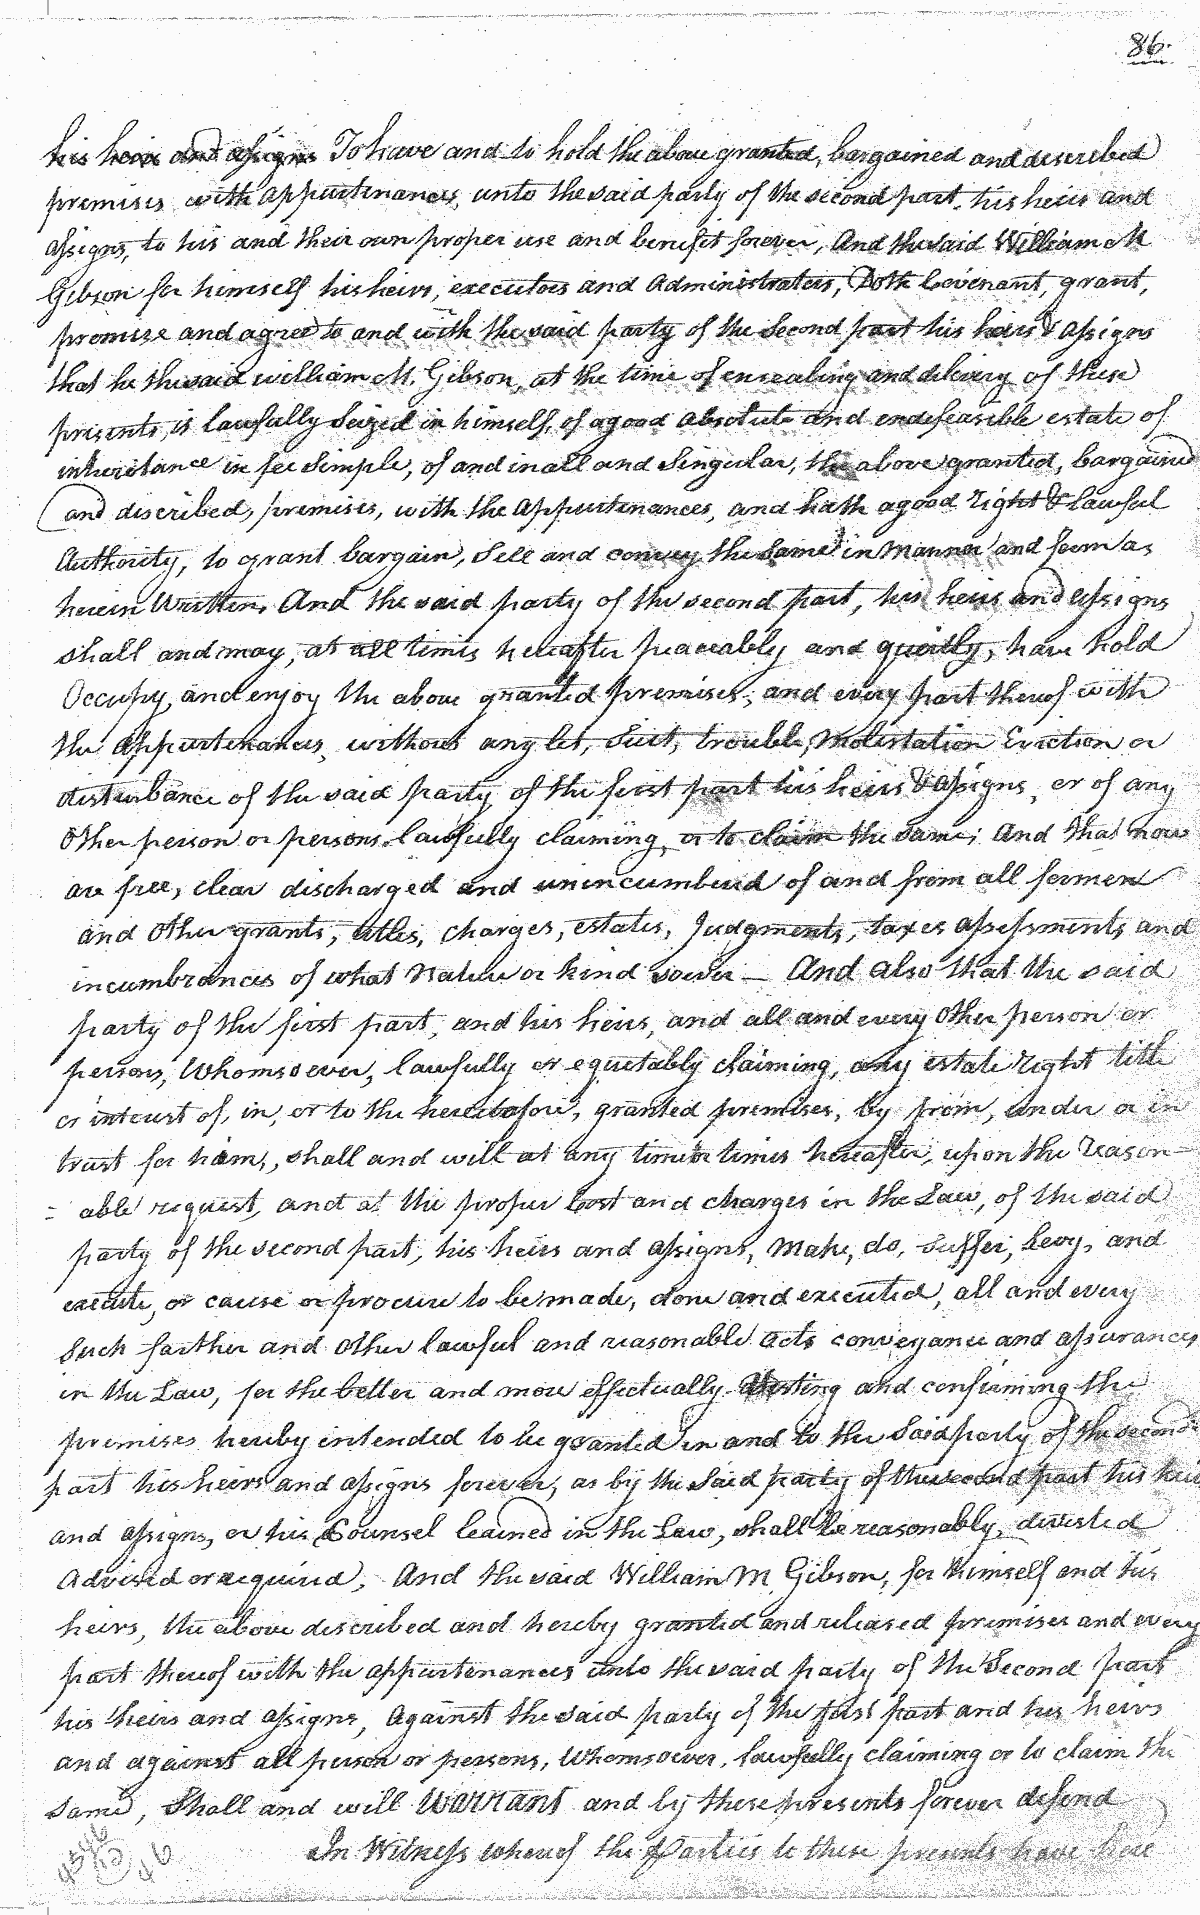 86.
his heirs and assigns To have and to hold the above granted, bargained and described
premises with appurtenances, unto the said party of the second part. his heirs and
assigns, to his and their own proper use and benefit forever, And the said William M
Gibson for himself his heirs, executors and Administrators, Doth Covenant, grant,
promise and agree to and with the said party of the Second part his heirs & assigns
that he the said william M. Gibson, at the time of ensealing and delivery of these
presents, is lawfully Seized in himself, of a good absolute and endefeasible estate of
inheritance in fee Simple, of and in all and Singular, the above granted, bargained
and discribed, premises, with the Appurtenances, and hath a good right & lawful
Authority, to grant bargain, Sell and convey the Same in manner and form as
herein Written. And the said party of the second part, his heirs and assigns
shall and may, at all times hereafter peaceably and quietly, have hold
Occupy, and enjoy the above granted premises, and every part thereof with
the Appurtenances, without any let, Suit, trouble, Molestation Eviction or
disturbance of the said party of the first part his heirs & assigns, or of any
Other person or persons lawfully claiming, or to claim the same; And that now
are free, clear discharged and unincumbered of and from all former
and other grants, titles, charges, estates, Judgments, taxes assessments, and
incumbrances of what Nature or kind soever — And also that the said
party of the first part, and his heirs, and all and every Other person or
persons, Whomsoever, lawfully or equetably claiming, any estate right title
or interest of, in, or to the heretofore, granted premises, by from, under or in
trust for him, shall and will at any time or times hereafter, upon the reason-
= able request, and at the proper Cost and charges in the Law, of the said
party of the second part, his heirs and assigns, make, do, Suffer, Levy, and
execute, or cause or procure to be made, done and executed, all and every
Such farther and other lawful and reasonable acts conveyance and assurances
in the Law, for the better and more effectually Vesting and confirming the
premises hereby intended to be granted in and to the Said party of the second
part his heirs and assigns forever, as by the Said party of the second part his heirs
and assigns, or his Counsel learned in the Law, shall be reasonably, devised
Advised or required, And the said William M. Gibson, for himself and his
heirs, the above described and hereby granted and released premises and every
part thereof with the appurtenances unto the said party of the Second part
his heirs and assigns, Against the said party of the first part and his heirs
and against all person or persons, Whomsoever, lawfully claiming or to claim the
Same, Shall and will Warrant and by these presents forever defend
In Witness whereof the Parties to these presents have here
46